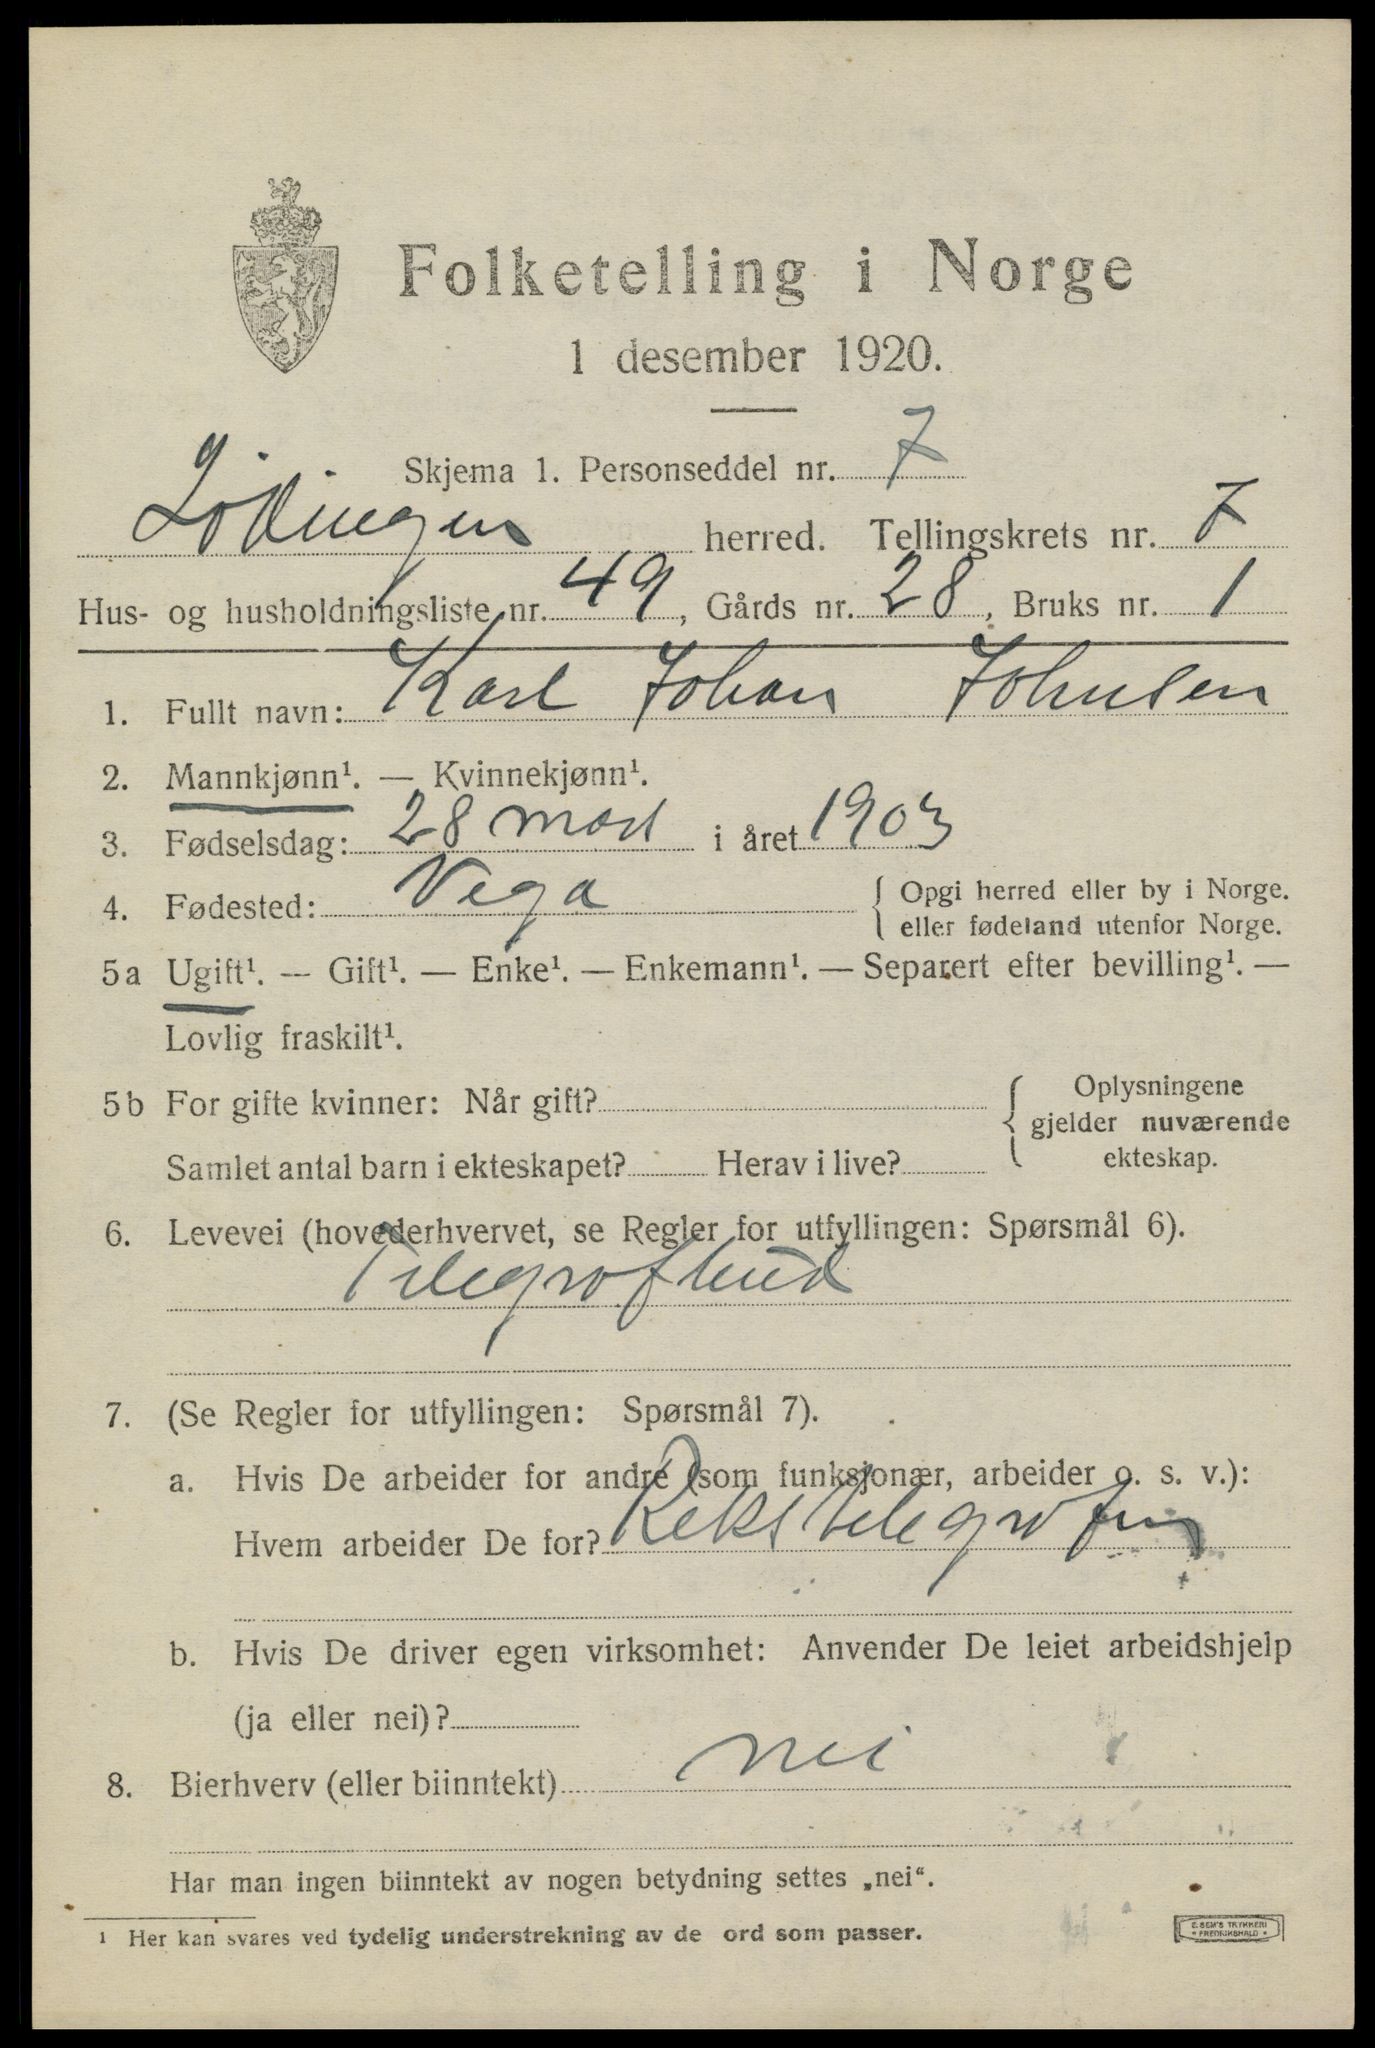 Folketelling i Norge
1 desember 1920.
Skjema 1. Personseddel nr. 7
Lödingen herred. Tellingskrets nr. 7
Hus- og husholdningsliste nr. 49, Gårds nr. 28, Bruks nr. 1
1. Fullt navn: Karl Johan Johnsen
2. Mannkjønn¹. — Kvinnekjønn¹.
3. Fødselsdag: 28 mars i året 1903
4. Fødested: Vega { Opgi herred eller by i Norge.
eller fødeland utenfor Norge.
5a Ugift¹. — Gift¹. — Enke¹. — Enkemann¹. — Separert efter bevilling¹. —
Lovlig fraskilt¹.
5b For gifte kvinner: Når gift? { Oplysningene
gjelder nuværende
Samlet antal barn i ekteskapet? Herav i live? ekteskap.
6. Levevei (hovederhvervet, se Regler for utfyllingen: Spørsmål 6).
Telegrafbud
7. (Se Regler for utfyllingen: Spørsmål 7).
a. Hvis De arbeider for andre (som funksjonær, arbeider o. s. v.):
Hvem arbeider De for? Rikstelegrafen
b. Hvis De driver egen virksomhet: Anvender De leiet arbeidshjelp
(ja eller nei)?
8. Bierhverv (eller biinntekt) nei
Har man ingen biinntekt av nogen betydning settes „nei“.
1 Her kan svares ved tydelig understrekning av de ord som passer.
E. SEM'S TRYKKERI
* FREDRIKSHALD *